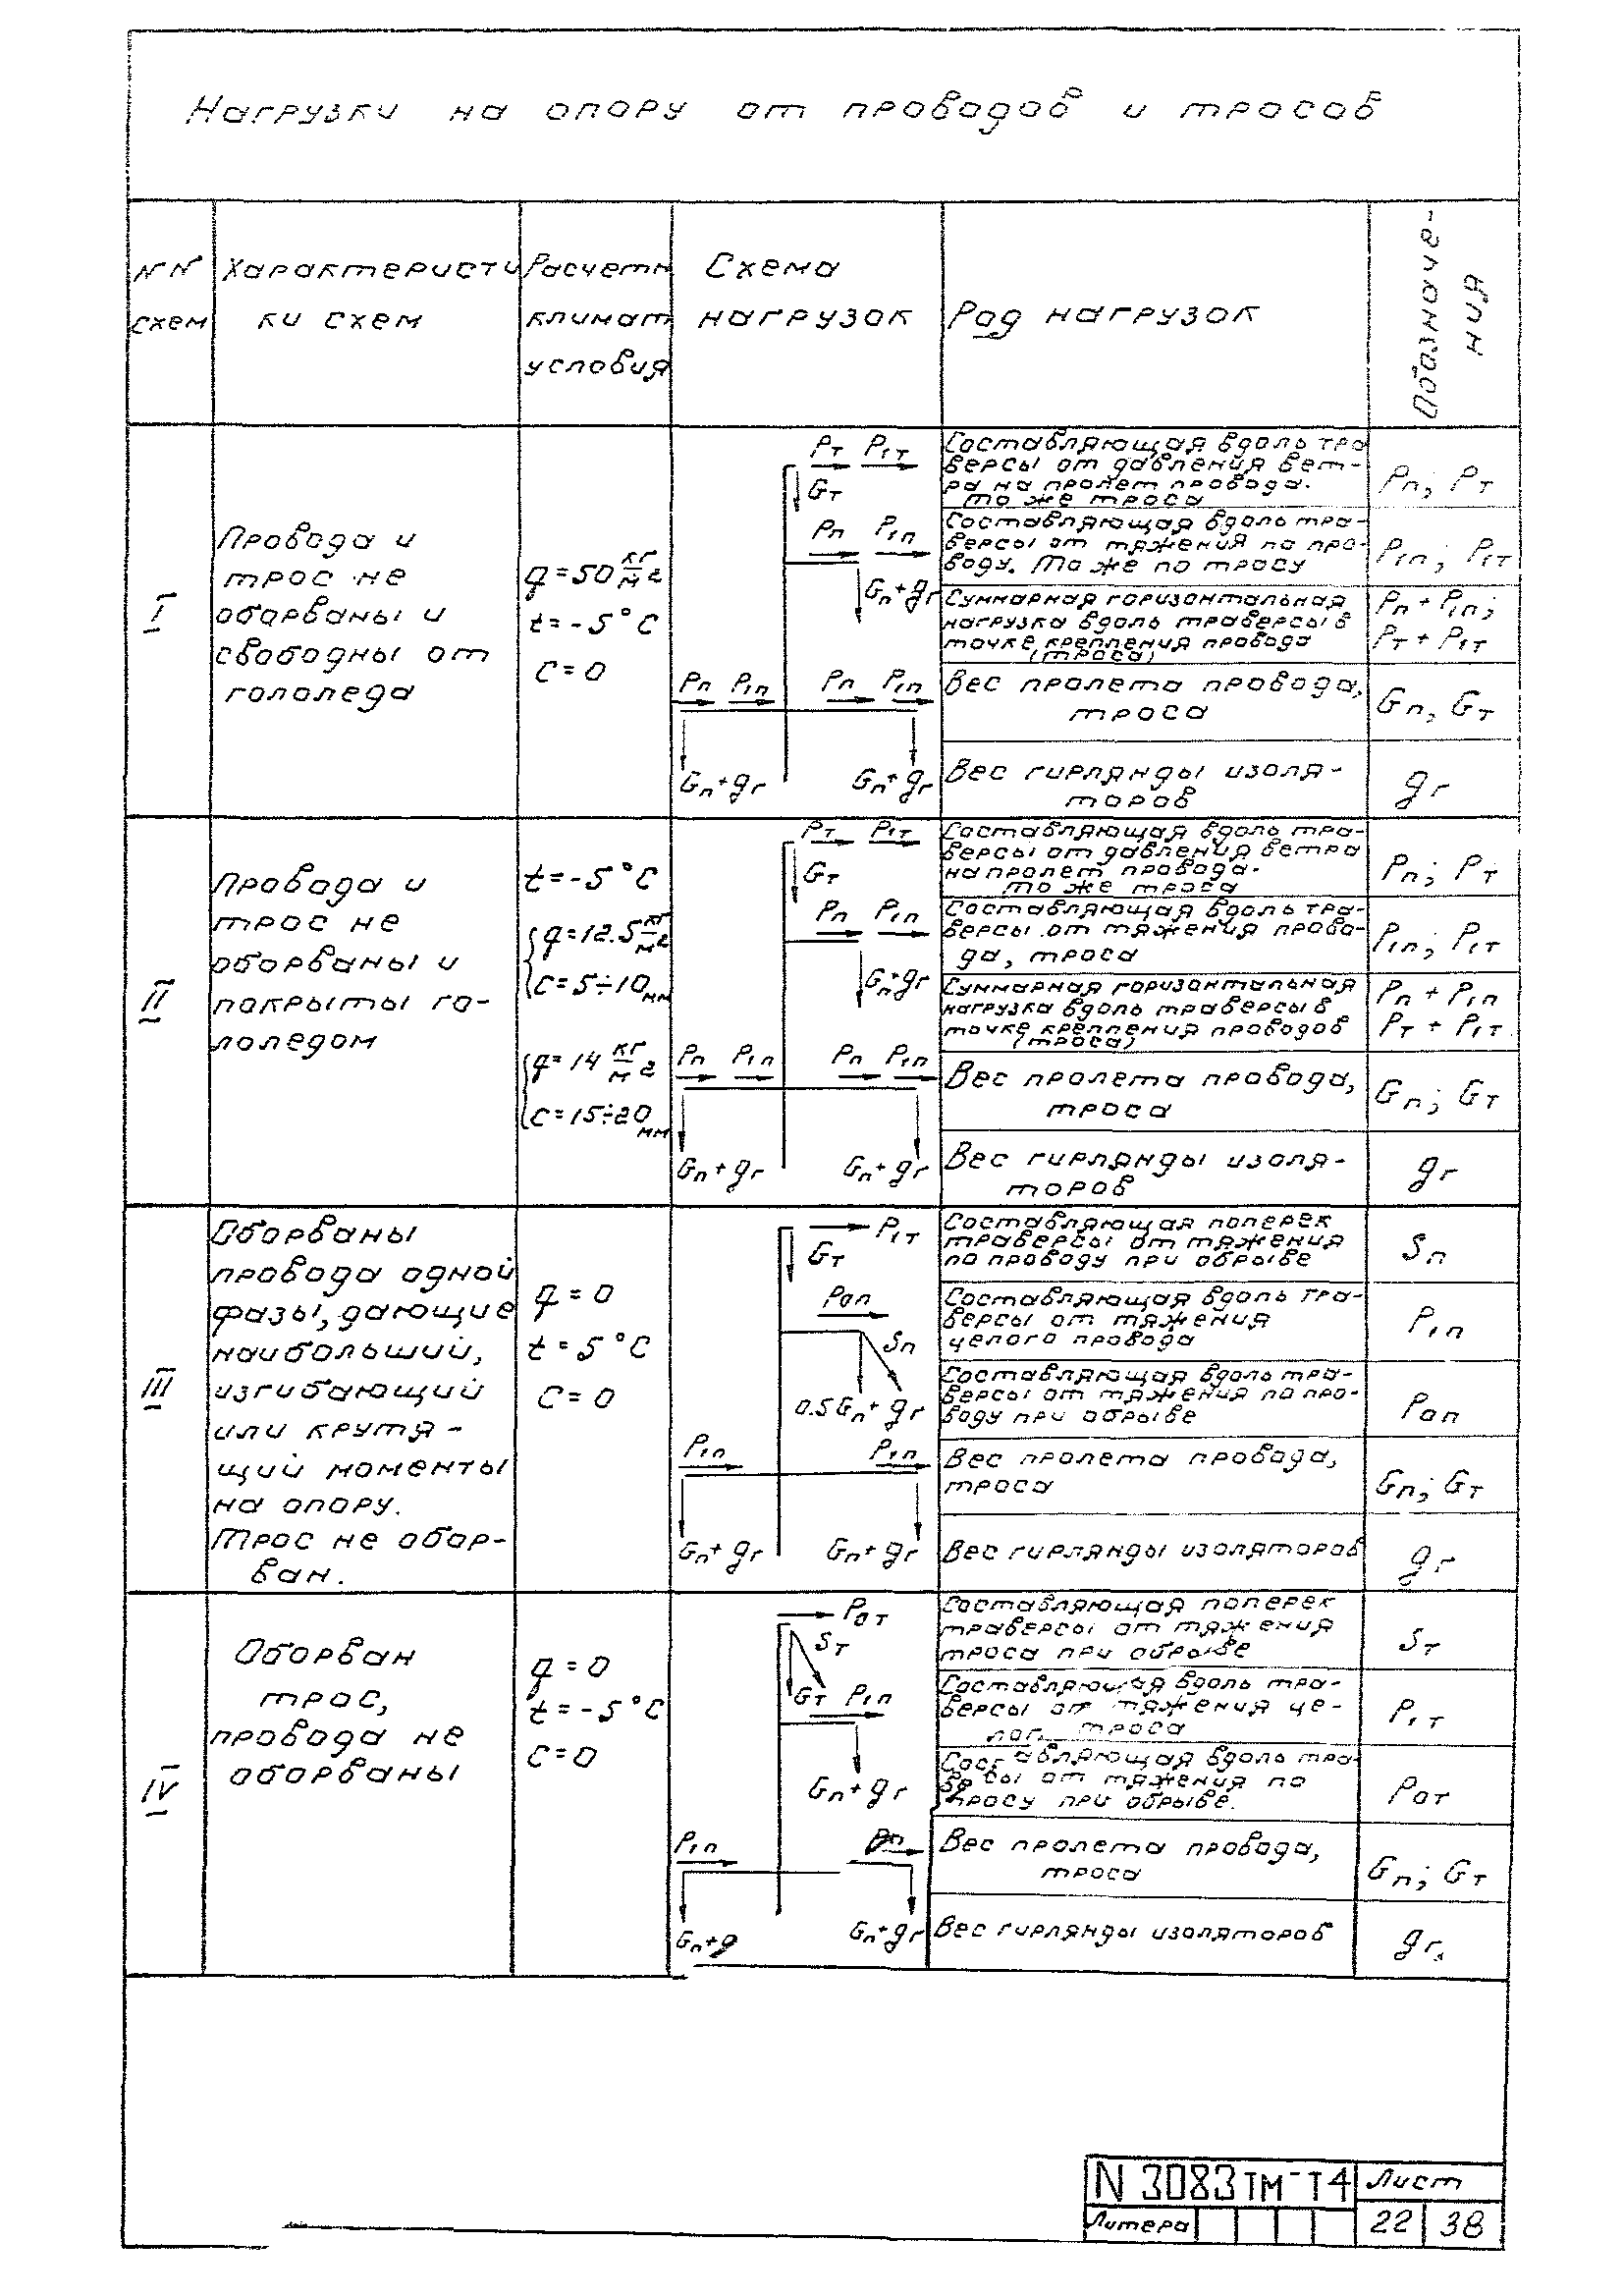 Нагрузки на опору от проводов и тросов
NN
схем
Характеристи
ки схем
Расчетн
климат
условия
Схема
нагрузок
Род нагрузок
Обозначе-
ния
I
Провода и
трос не
оборваны и
свободны от
гололеда
q = 50 кг/м2
t = -5°C
C = 0
Pт P1т
Gт
Pп P1п
Gп+gг
Pп P1п Pп P1п
Gп+gг Gп+gг
Составляющая вдоль тра
версы от давления вет-
ра на пролет провода.
То же троса
Pп; Pт
Составляющая вдоль тра-
версы от тяжения по про-
воду. То же по тросу
P1п; P1т
Суммарная горизонтальная
нагрузка вдоль траверсы в
точке крепления провода
(троса)
Pп + P1п;
Pт + P1т
Вес пролета провода,
троса
Gп, Gт
Вес гирлянды изоля-
торов
gг
II
Провода и
трос не
оборваны и
покрыты го-
лоледом
t = -5°C
q = 12.5 кг/м2
C = 5÷10 мм
q = 14 кг/м2
C = 15÷20 мм
Pт P1т
Gт
Pп P1п
Gп+gг
Pп P1п Pп P1п
Gп+gг Gп+gг
Составляющая вдоль тра-
версы от давления ветра
на пролет провода.
То же троса
Pп; Pт
Составляющая вдоль тра-
версы от тяжения прово-
да, троса
P1п; P1т
Суммарная горизонтальная
нагрузка вдоль траверсы в
точке крепления проводов
(троса)
Pп + P1п
Pт + P1т.
Вес пролета провода,
троса
Gп; Gт
Вес гирлянды изоля-
торов
gг
III
Оборваны
провода одной
фазы, дающие
наибольший,
изгибающий
или крутя-
щий моменты
на опору.
Трос не обор-
ван.
q = 0
t = 5°C
C = 0
P1т
Gт
Pоп
Sп
0.5Gп+gг
P1п P1п
Gп+gг Gп+gг
Составляющая поперек
траверсы от тяжения
по проводу при обрыве
Sп
Составляющая вдоль тра-
версы от тяжения
целого провода
P1п
Составляющая вдоль тра-
версы от тяжения по про-
воду при обрыве
Pоп
Вес пролета провода,
троса
Gп; Gт
Вес гирлянды изоляторов
gг
IV
Оборван
трос,
провода не
оборваны
q = 0
t = -5°C
C = 0
Pот
Sт
Gт P1п
Gп+gг
P1п
Gп+g Gп+gг
Составляющая поперек
траверсы от тяжения
троса при обрыве
Sт
Составляющая вдоль тра-
версы от тяжения це-
лог. троса
P1т
Сост авляющая вдоль тра-
ве сы от тяжения по
тросу при обрыве.
Pот
Вес пролета провода,
троса
Gп; Gт
Вес гирлянды изоляторов
gг.
N 3083тм-т4
Лист
Литера
22 38